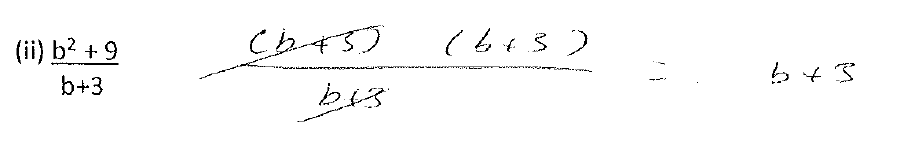 (ii) b² + 9
b+3
(b+3) (b+3)
b+3
= b+3